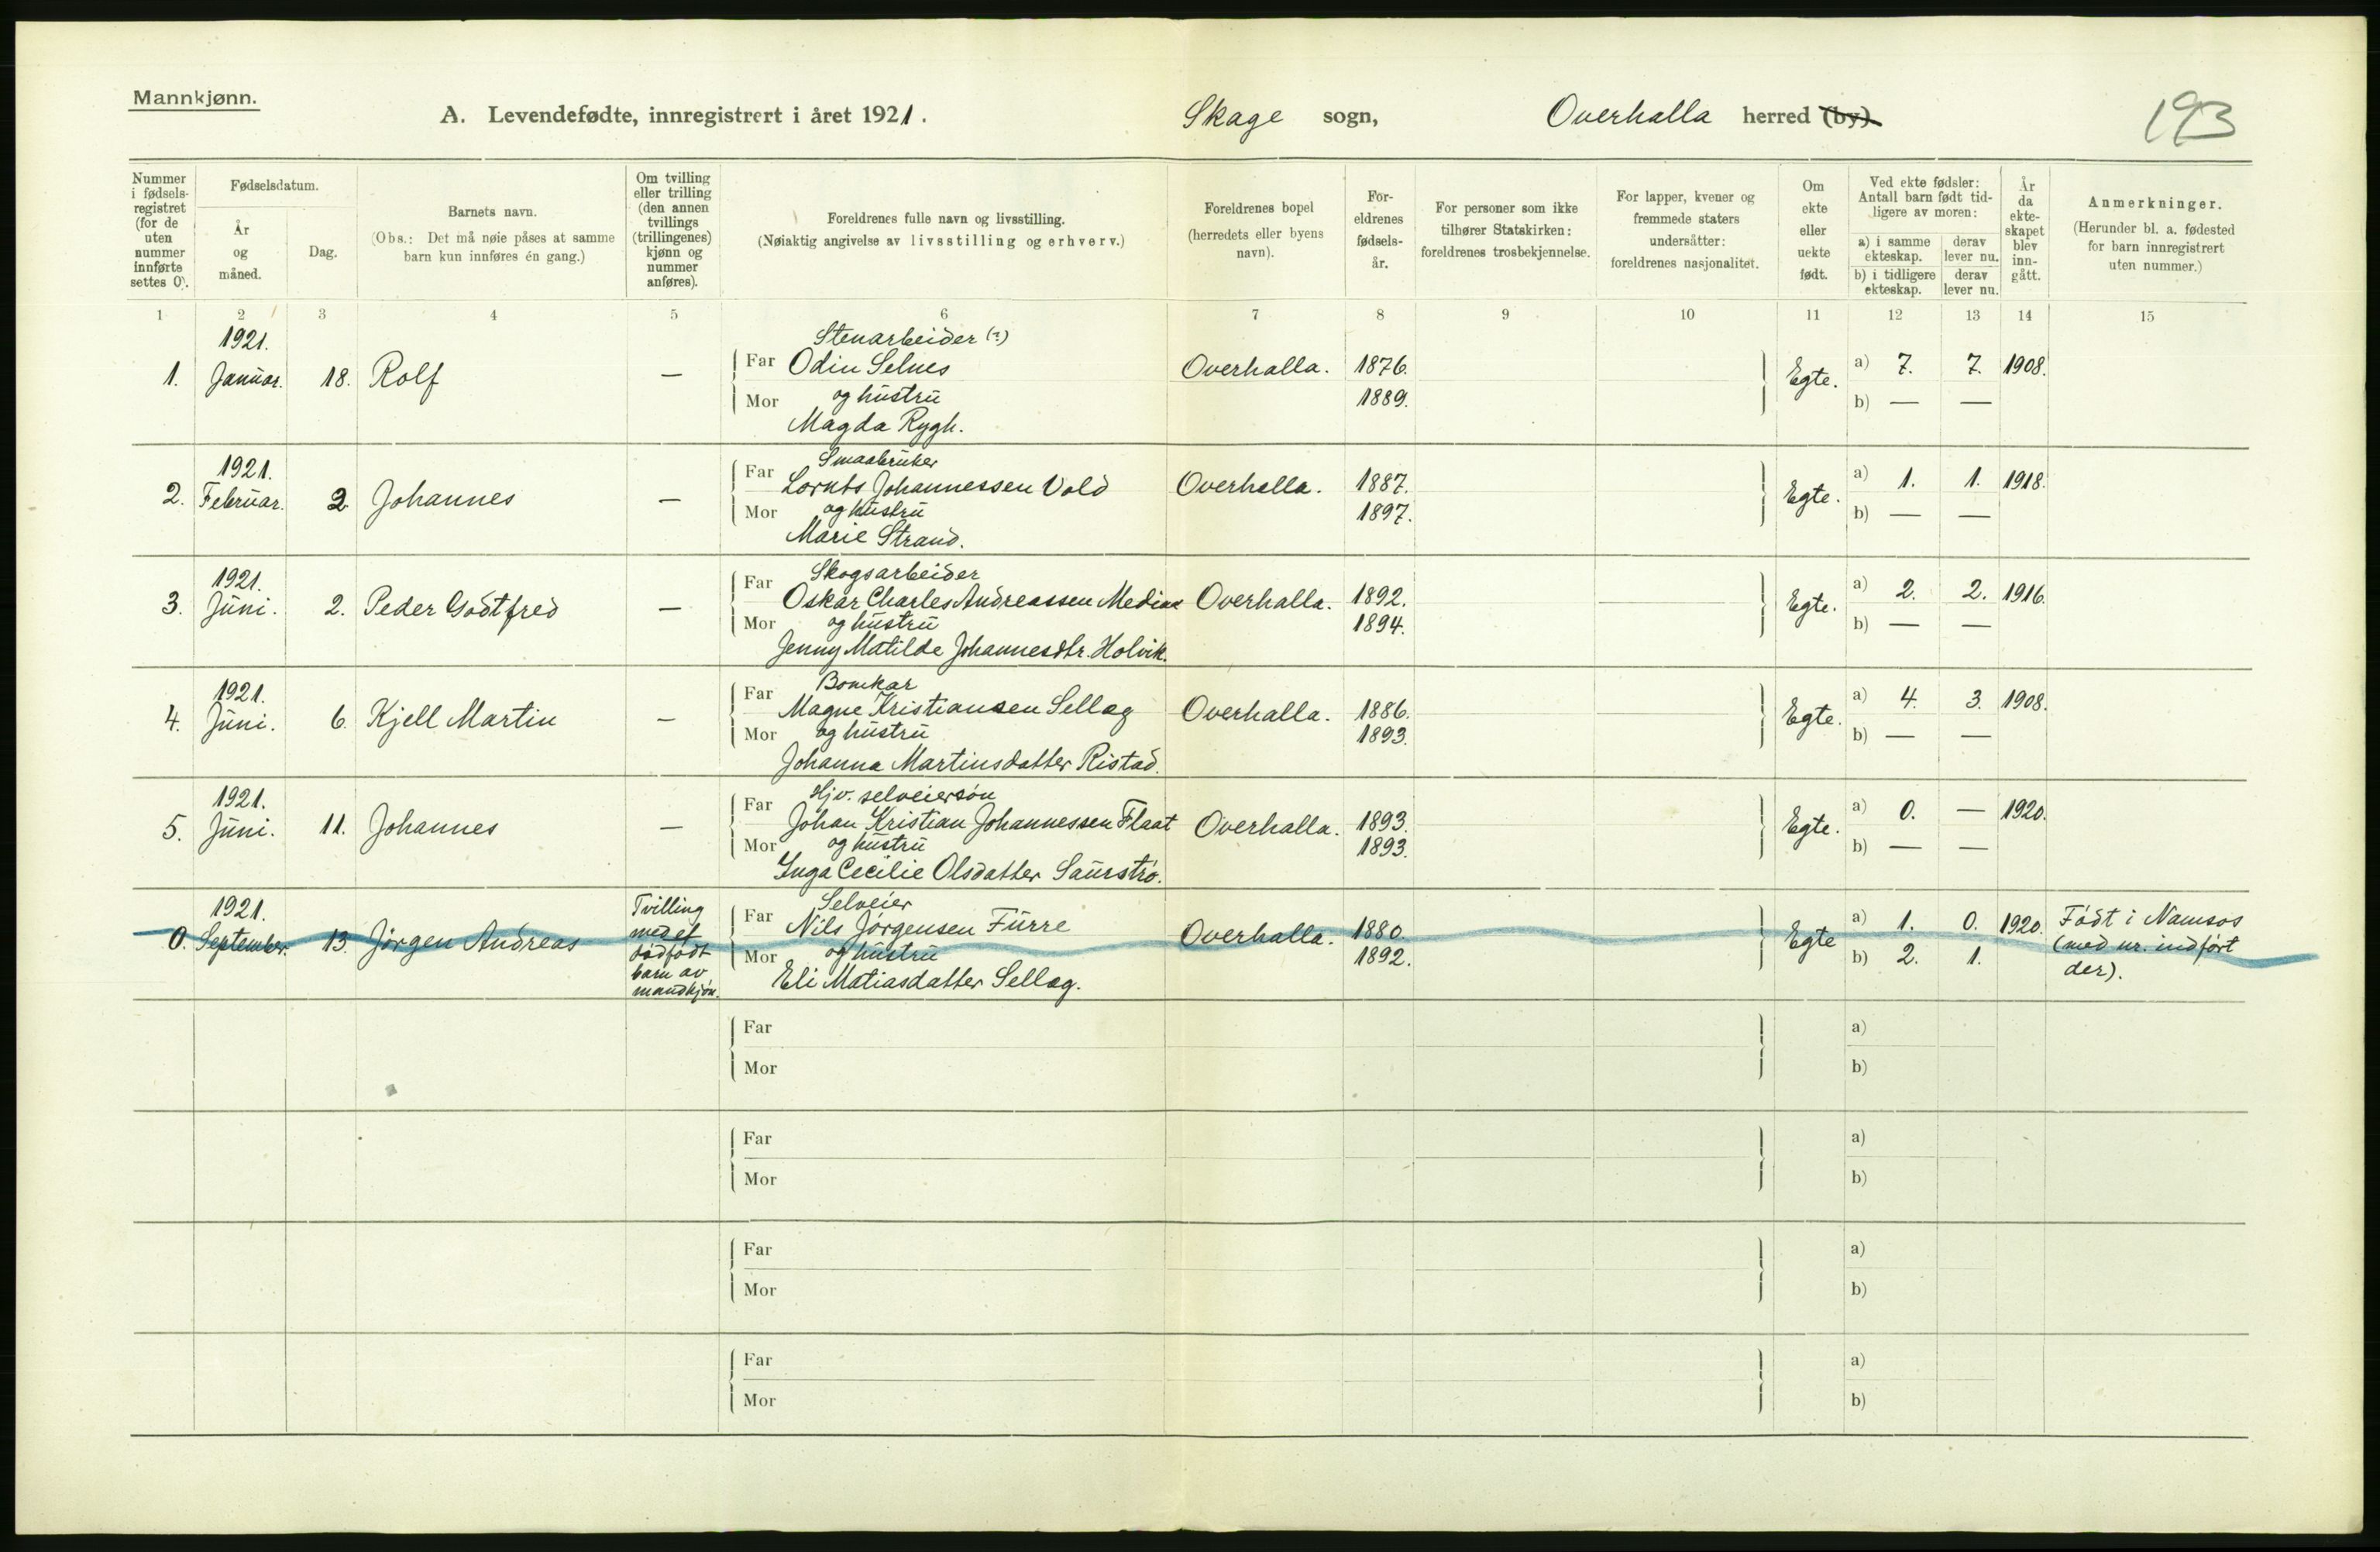 Mannkjønn.
A. Levendefødte, innregistrert i året 1921. Skage sogn, Overhalla herred (by). 193
Nummer i fødsels-registret (for de uten nummer innførte settes 0).
Fødselsdatum.
År og måned.
Dag.
Barnets navn.
(Obs.: Det må nøie påses at samme barn kun innføres én gang.)
Om tvilling eller trilling (den annen tvillings (trillingenes) kjønn og nummer anføres).
Foreldrenes fulle navn og livsstilling.
(Nøiaktig angivelse av livsstilling og erhverv.)
Foreldrenes bopel (herredets eller byens navn).
For-eldrenes fødsels-år.
For personer som ikke tilhører Statskirken: foreldrenes trosbekjennelse.
For lapper, kvener og fremmede staters undersåtter: foreldrenes nasjonalitet.
Om ekte eller uekte født.
Ved ekte fødsler: Antall barn født tid-ligere av moren:
a) i samme ekteskap. derav lever nu.
b) i tidligere ekteskap. derav lever nu.
År da ekte-skapet blev inn-gått.
Anmerkninger.
(Herunder bl. a. fødested for barn innregistrert uten nummer.)
1 2 3 4 5 6 7 8 9 10 11 12 13 14 15
1921. Stenarbeider (?)
1. Januar. 18. Rolf — Far Odin Selnes Overhalla. 1876. Egte. a) 7. 7. 1908.
Mor og hustru 1889. b) — —
Magda Rygh.
1921. Smaabruker
2. Februar. 2. Johannes — Far Lornts Johannessen Vold Overhalla. 1887. Egte. a) 1. 1. 1918.
Mor og hustru 1897. b) — —
Marie Strand.
1921. Skogsarbeider
3. Juni. 2. Peder Godtfred — Far Oskar Charles Andreassen Mediaa Overhalla. 1892. Egte. a) 2. 2. 1916.
Mor og hustru 1894. b) — —
Jenny Matilde Johannesdtr. Holvik.
1921. Bomkar
4. Juni. 6. Kjell Martin — Far Magne Kristiansen Sellæg Overhalla. 1886. Egte. a) 4. 3. 1908.
Mor og hustru 1893. b) — —
Johanna Martinsdatter Ristad.
1921. Hjv. selveiersøn
5. Juni. 11. Johannes — Far Johan Kristian Johannessen Flaat Overhalla. 1893. Egte. a) 0. — 1920.
Mor og hustru 1893. b) — —
Inga Cecilie Olsdatter Saurstrø.
1921. Tvilling med et dødfødt barn av mandkjøn. Selveier
0. September. 13. Jørgen Andreas Far Nils Jørgensen Furre Overhalla. 1880. Egte a) 1. 0. 1920. Født i Namsos
Mor og hustru 1892. b) 2. 1. (med nr. indført
Eli Matiasdatter Sellæg. der).
Far a)
Mor b)
Far a)
Mor b)
Far a)
Mor b)
Far a)
Mor b)